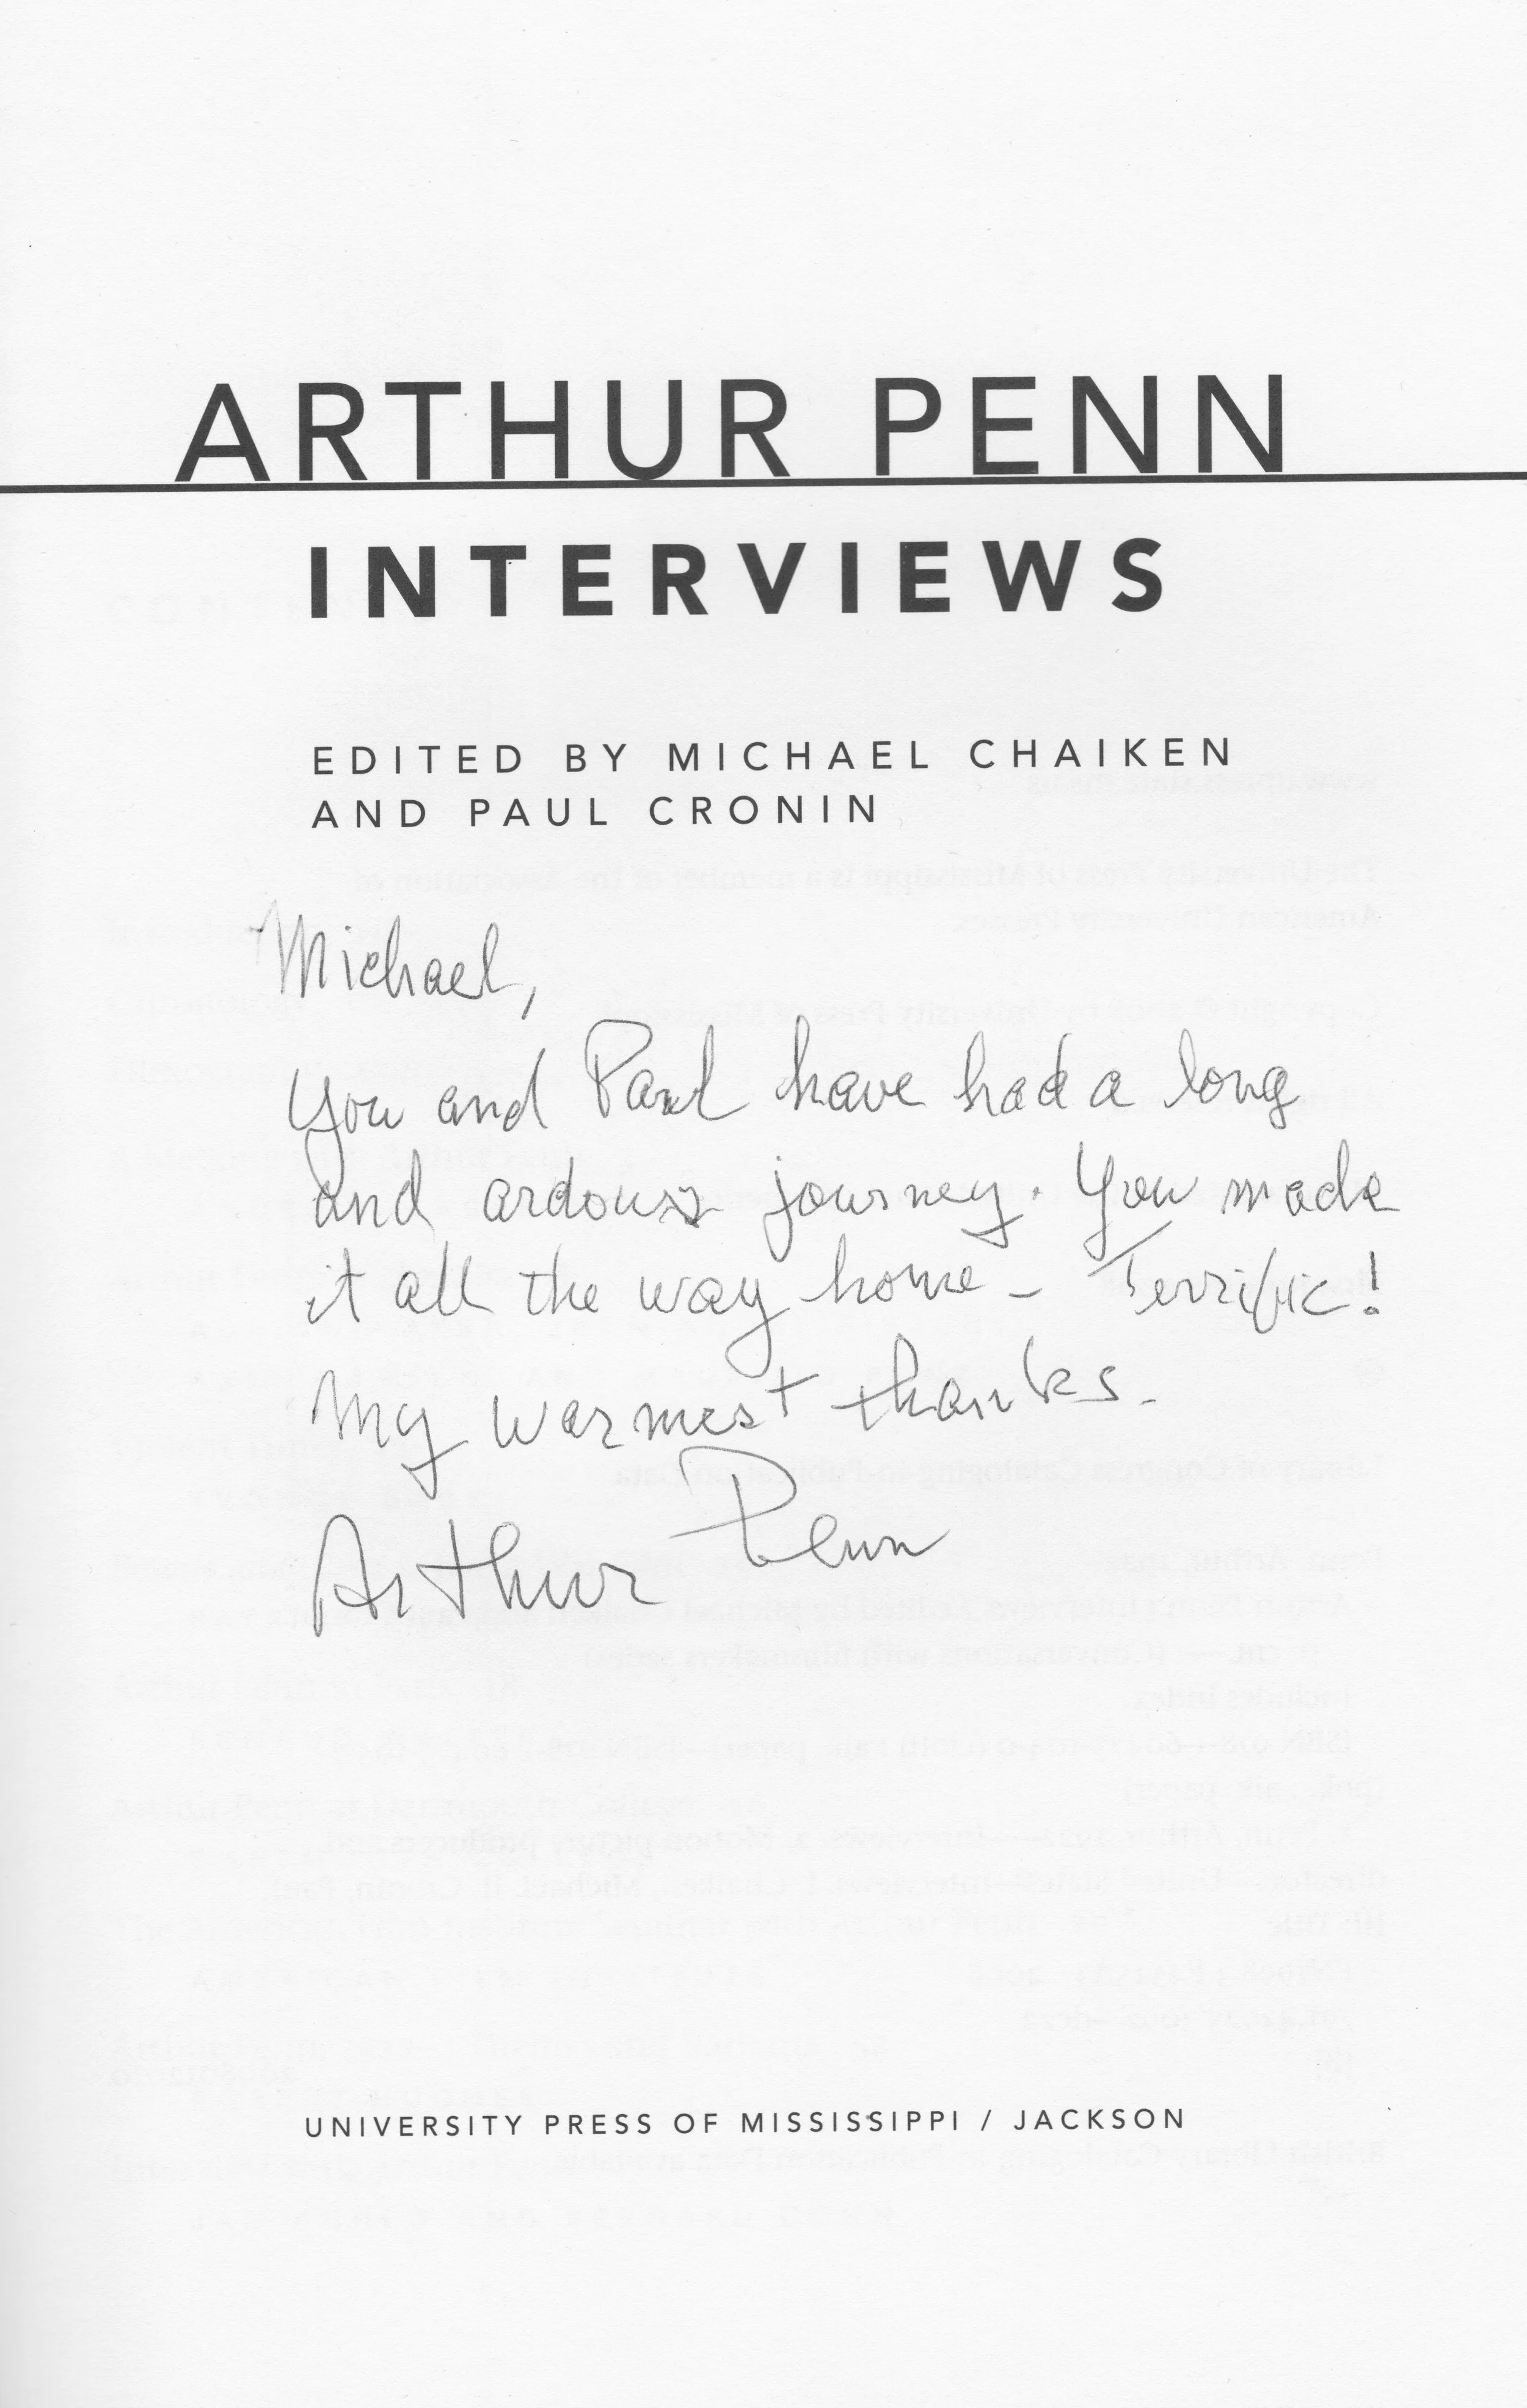 ARTHUR PENN
INTERVIEWS
EDITED BY MICHAEL CHAIKEN
AND PAUL CRONIN
Michael,
You and Paul have had a long
and ardouss journey. You made
it all the way home - Terrific!
My warmest thanks.
Arthur Penn
UNIVERSITY PRESS OF MISSISSIPPI / JACKSON